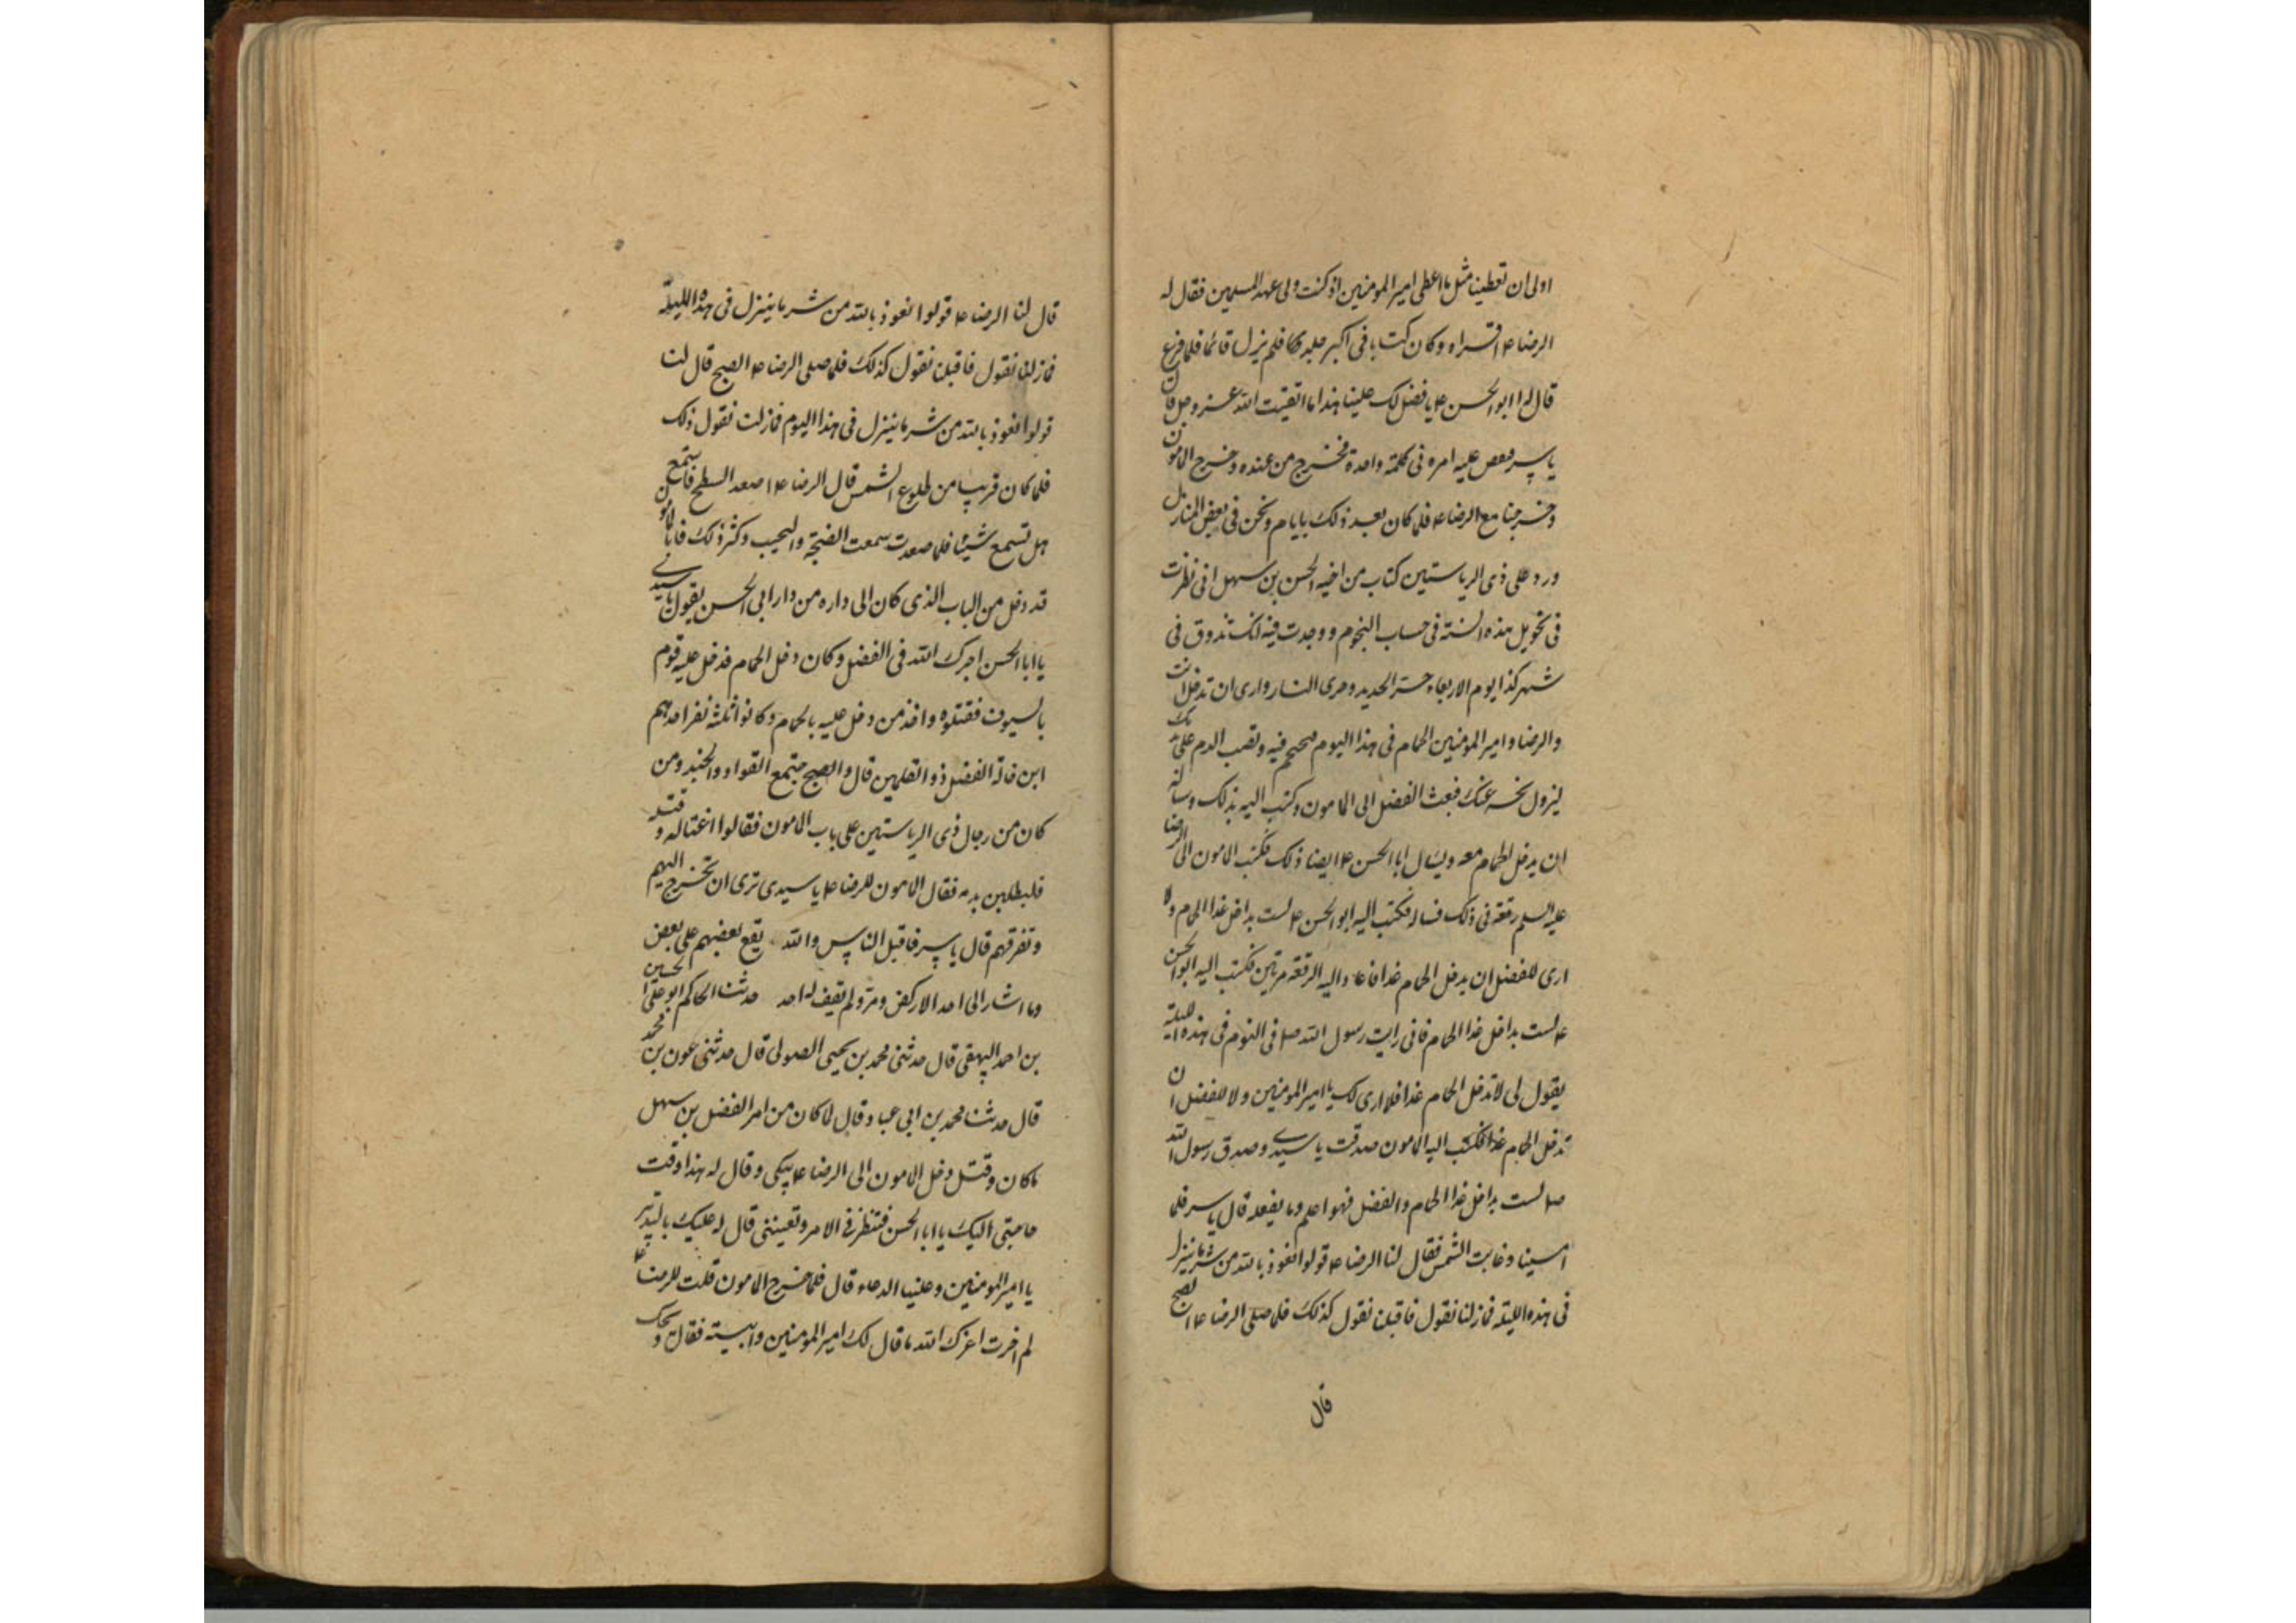 اولى ان تعطينا مثل ما اعطى امير المومنين اذ كنت ولى عهد المسلمين فقال له
الرضا ع اقراه وكان كتابا فى اكبر جلد فلم يزل قائما فلما فرغ
قال له ابو الحسن ع يا فضل لك علينا هذا ما اتقيت الله عز وجل قال
ياسر فنقص عليه امره فى كلمة واحدة فخرج من عنده وخرج المامون
وخرجنا مع الرضا ع فلما كان بعد ذلك بايام ونحن فى بعض المنازل
ورد على ذى الرياستين كتاب من اخيه الحسن بن سهل انى نظرت
فى تحويل هذه السنة فى حساب النجوم ووجدت فيه انك تذوق فى
شهر كذا يوم الاربعاء حر الحديد وحرى النار وارى ان تدخل انت
والرضا وامير المؤمنين الحمام فى هذا اليوم فتحتجم فيه وتصب الدم على بدنك
ليزول نحسه عنك فبعث الفضل الى المامون وكتب اليه بذلك وساله
ان يدخل الحمام معه ويسال ابا الحسن ع ايضا ذلك فكتب المامون الى الرضا
عليه السلم رقعة فى ذلك فساله فكتب اليه ابو الحسن ع لست بداخل غدا الحمام ولا
ارى للفضل ان يدخل الحمام غدا فاعاد اليه الرقعة مرتين فكتب اليه ابو الحسن
ع لست بداخل غدا الحمام فانى رايت رسول الله ص فى النوم فى هذه الليلة
يقول لى لا تدخل الحمام غدا فلا ارى لك يا امير المومنين ولا للفضل ان
تدخل الحمام غدا فكتب اليه المامون صدقت يا سيدى وصدق رسول الله
ص لست بداخل غدا الحمام والفضل فهو اعلم وما يفعله قال ياسر فلما
امسينا وغابت الشمس فقال لنا الرضا ع قولوا نعوذ بالله من شر ما ينزل
فى هذه الليلة فمازلنا نقول فاقبلنا نقول كذلك فلما صلى الرضا ع الصبح
قال
قال لنا الرضا ع قولوا نعوذ بالله من شر ما ينزل فى هذه الليلة
فمازلنا نقول فاقبلنا نقول كذلك فلما صلى الرضا ع الصبح قال لنا
قولوا نعوذ بالله من شر ما ينزل فى هذا اليوم فمازلت نقول ذلك
فلما كان قريبا من طلوع الشمس قال الرضا ع اصعد السطح فاستمع
هل تسمع شيئا فلما صعدت سمعت الضجة والنحيب وكثر ذلك فاذا المأمون
قد دخل من الباب الذى كان الى داره من دار ابى الحسن يقول يا سيدى
يا ابا الحسن اجرك الله فى الفضل وكان دخل الحمام فدخل عليه قوم
بالسيوف فقتلوه واخذ من دخل عليه بالحمام وكانوا ثلثة نفر احدهم
ابن خالة الفضل ذو القلمين قال والصبح مجتمع القواد والجند ومن
كان من رجال ذى الرياستين على باب المامون فقالوا اغتاله وقتله
فليطلبن بدمه فقال المامون للرضا ع يا سيدى ترى ان تخرج اليهم
وتفرقهم قال ياسر فاقبل الناس والله يقع بعضهم على بعض
وما اشار الى احد الا ركض ومر ولم يقف له احد حدثنا الحاكم ابو على الحسين
بن احمد البيهقى قال حدثنى محمد بن يحيى الصولى قال حدثنى عون بن محمد
قال حدثنا محمد بن ابى عباد قال لما كان من امر الفضل بن سهل
ما كان وقتل دخل المامون الى الرضا ع يبكى وقال له هذا وقت
حاجتى اليك يا ابا الحسن فتنظر فى الامر وتعيننى قال له عليك بالتدبير
يا امير المومنين وعلينا الدعاء قال فلما خرج المامون قلت للرضا ع
لم اخرت اعزك الله ما قال لك امير المومنين وابيته فقال ويحك